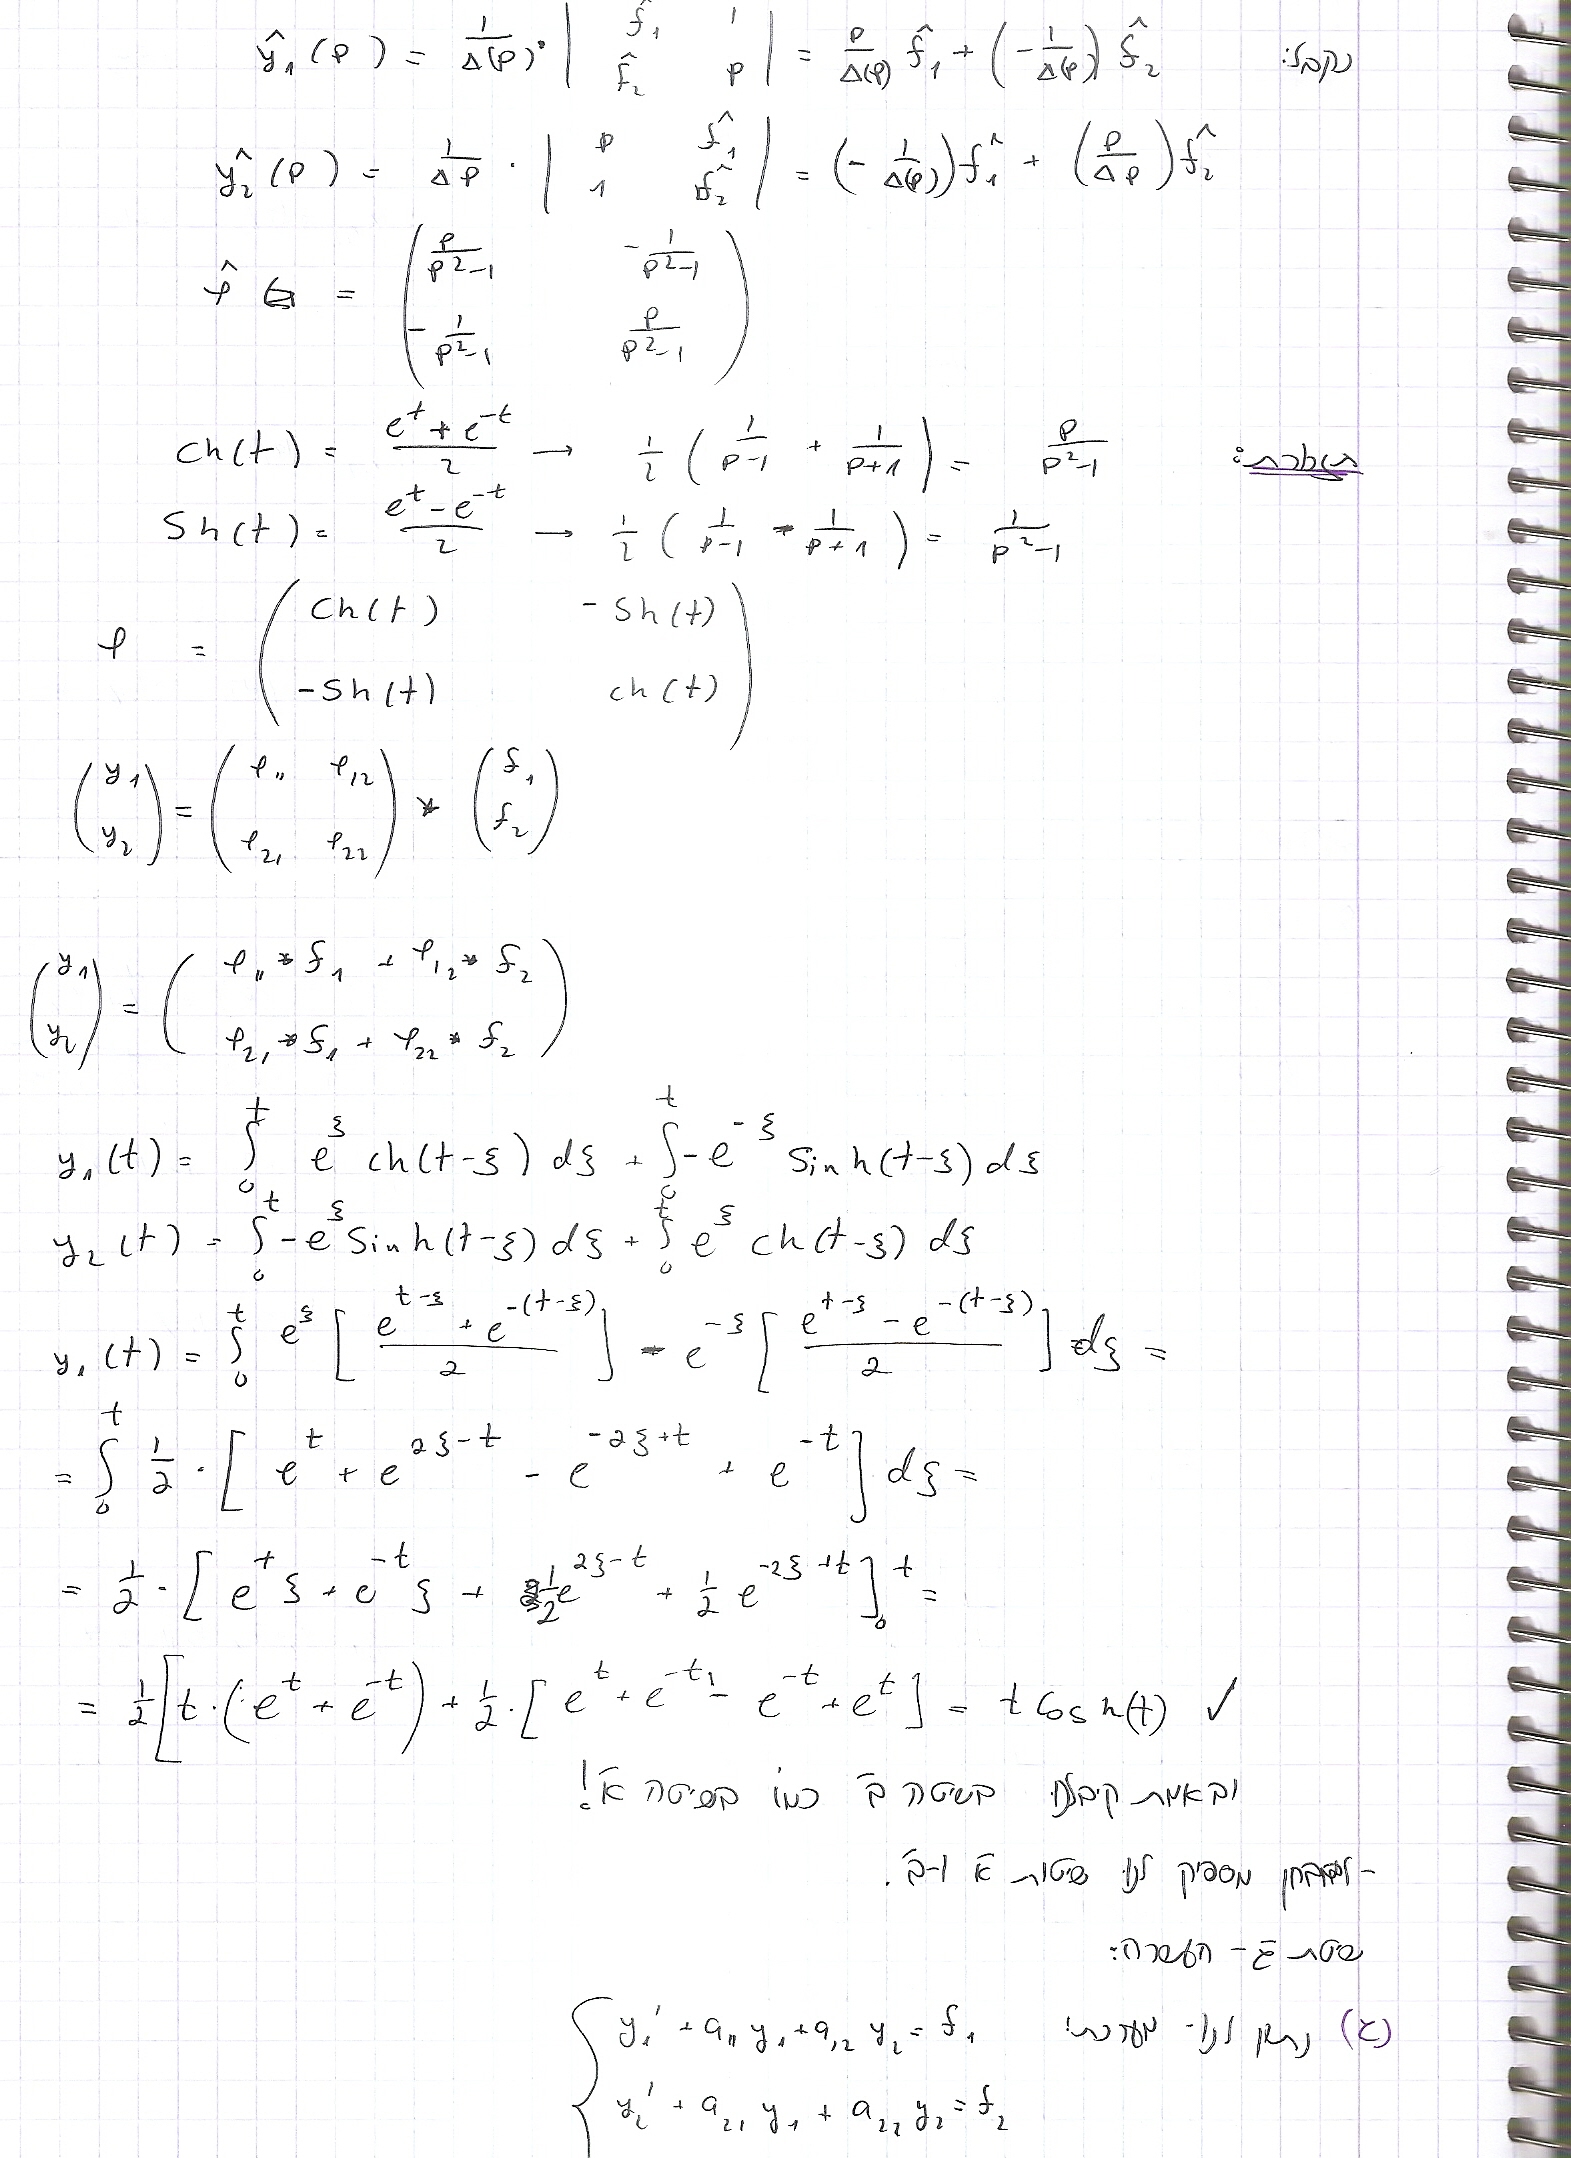 נקבל: ŷ₁(p) = 1/Δ(p) · | f̂₁ 1 ; f̂₂ p | = p/Δ(p) f̂₁ + (-1/Δ(p)) f̂₂
ŷ₂(p) = 1/Δp · | p f̂₁ ; 1 f̂₂ | = (-1/Δ(p)) f̂₁ + (p/Δp) f̂₂
φ̂ = ( p/(p²-1) -1/(p²-1) ; -1/(p²-1) p/(p²-1) )
תזכורת: ch(t) = (e^t + e^-t)/2 → 1/2 (1/(p-1) + 1/(p+1)) = p/(p²-1)
Sh(t) = (e^t - e^-t)/2 → 1/2 (1/(p-1) - 1/(p+1)) = 1/(p²-1)
φ = ( Ch(t) -Sh(t) ; -Sh(t) ch(t) )
(y₁ ; y₂) = ( φ₁₁ φ₁₂ ; φ₂₁ φ₂₂ ) * (f₁ ; f₂)
(y₁ ; y₂) = ( φ₁₁ * f₁ + φ₁₂ * f₂ ; φ₂₁ * f₁ + φ₂₂ * f₂ )
y₁(t) = ∫₀^t e^ξ ch(t-ξ) dξ + ∫₀^t -e^-ξ Sinh(t-ξ) dξ
y₂(t) = ∫₀^t -e^ξ Sinh(t-ξ) dξ + ∫₀^t e^ξ ch(t-ξ) dξ
y₁(t) = ∫₀^t e^ξ [ (e^(t-ξ) + e^-(t-ξ))/2 ] - e^-ξ [ (e^(t-ξ) - e^-(t-ξ))/2 ] dξ =
= ∫₀^t 1/2 · [ e^t + e^(2ξ-t) - e^(-2ξ+t) + e^-t ] dξ =
= 1/2 · [ e^t ξ + e^-t ξ + 1/2 e^(2ξ-t) + 1/2 e^(-2ξ+t) ]₀^t =
= 1/2 [ t · (e^t + e^-t) + 1/2 · [ e^t + e^-t - e^-t + e^t ] = t Cosh(t) ✓
ובאמת קיבלנו בשיטה ב' כמו בשיטה א'!
- למבחן מספיק לנו שיטות א' ו-ב'.
שיטת ג' - העשרה:
(ג) נתון לנו מערכת: { y₁' + a₁₁ y₁ + a₁₂ y₂ = f₁
y₂' + a₂₁ y₁ + a₂₂ y₂ = f₂